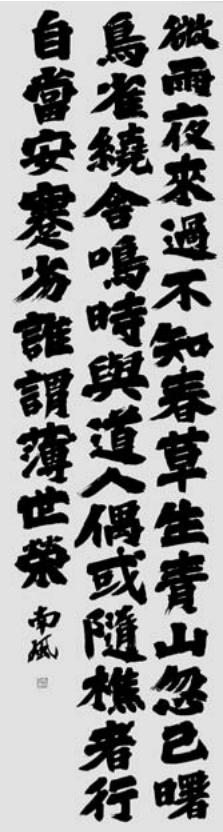 微雨夜來過不知春草生青山忽已曙
鳥雀繞舍鳴時與道人偶或隨樵者行
自當安蹇劣誰謂薄世榮
南風